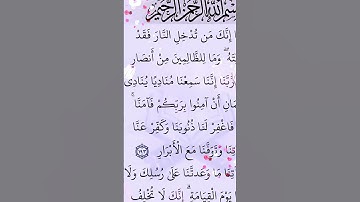 بسم الله الرحمن الرحيم
إِنَّكَ مَن تُدْخِلِ النَّارَ فَقَدْ
وَمَا لِلظَّالِمِينَ مِنْ أَنصَارٍ
رَبَّنَا إِنَّنَا سَمِعْنَا مُنَادِيًا يُنَادِي
أَنْ آمِنُوا بِرَبِّكُمْ فَآمَنَّا ۚ
فَاغْفِرْ لَنَا ذُنُوبَنَا وَكَفِّرْ عَنَّا
وَتَوَفَّنَا مَعَ الْأَبْرَارِ ﴿١٩٣﴾
مَا وَعَدتَّنَا عَلَىٰ رُسُلِكَ وَلَا
يَوْمَ الْقِيَامَةِ ۗ إِنَّكَ لَا تُخْلِفُ